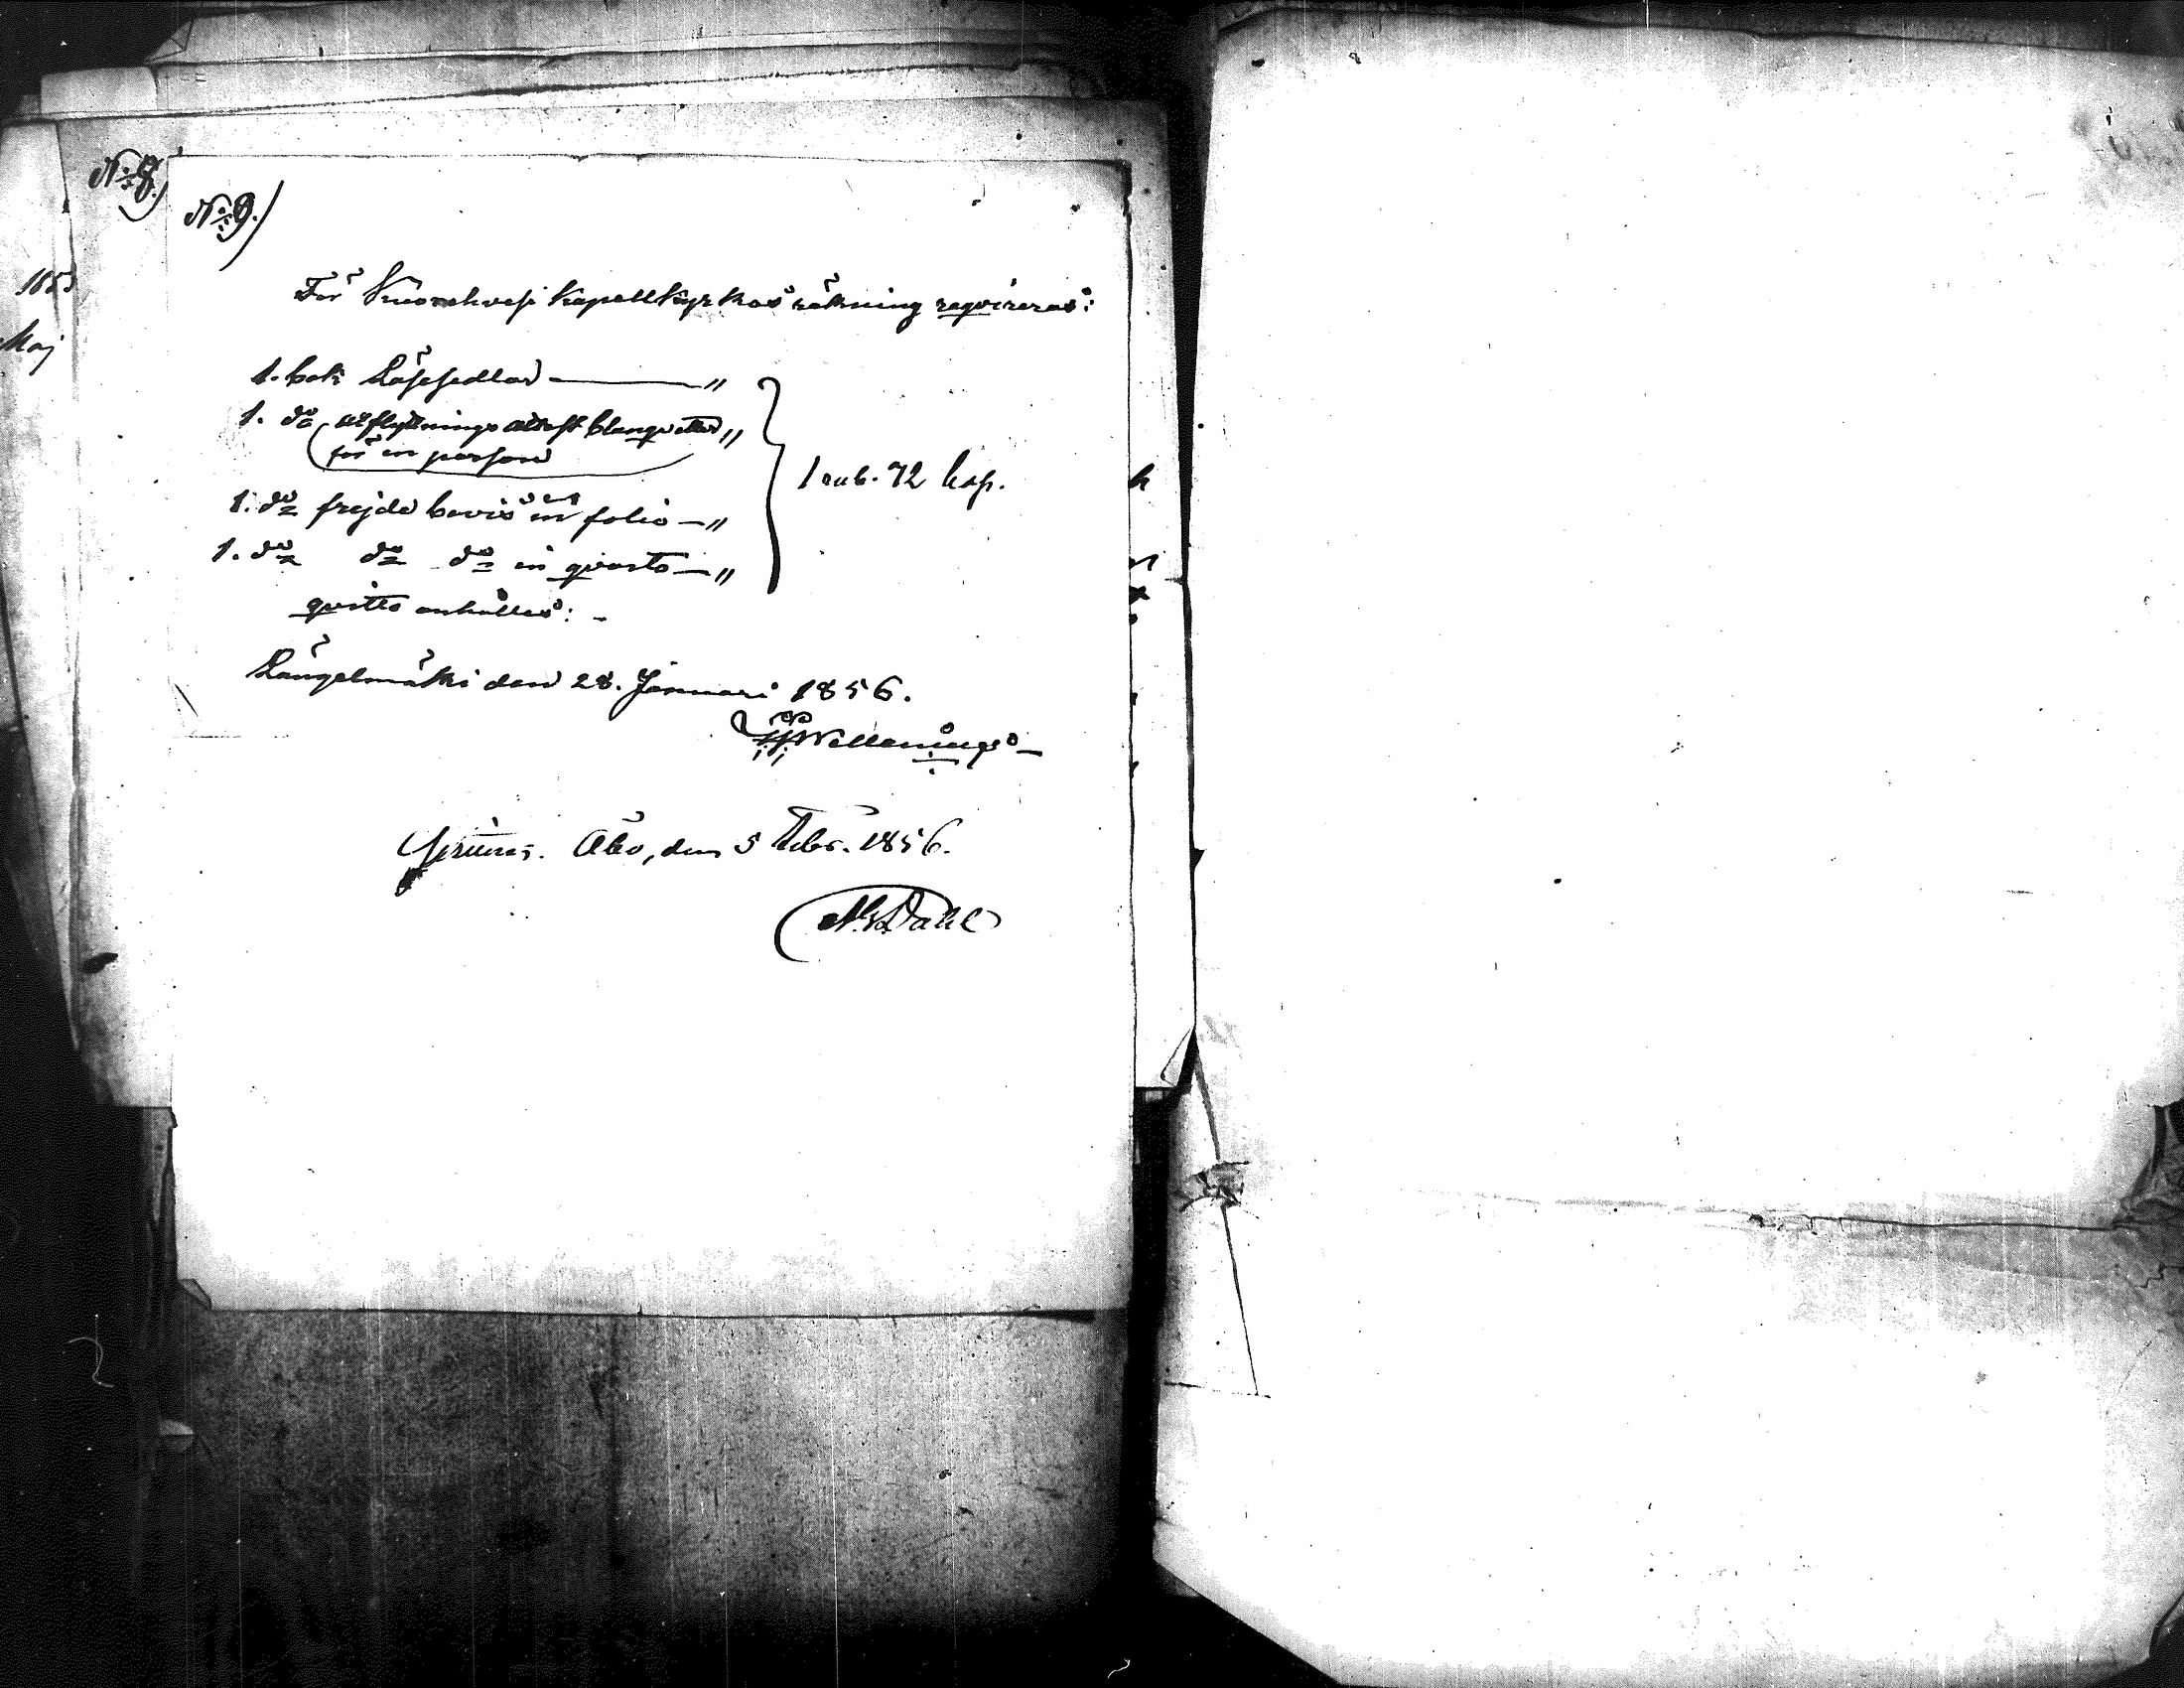 N:o 8.)
N:o 9.)
1853
Maj
För Kuorehvesi Kapellkyrkas räkning reqvireras:
1. bok Läsesedlar — "
1. do utflyttnings attest blanqvetter "
(för en person
1. do frejde bevis in folio — "
1. do do do in qvarto — "
1 rub. 72 kop.
qvitto anhålles: -
Längelmäki den 28. Januari 1856.
Åbo, den 5 Febr. 1856.
Dahl